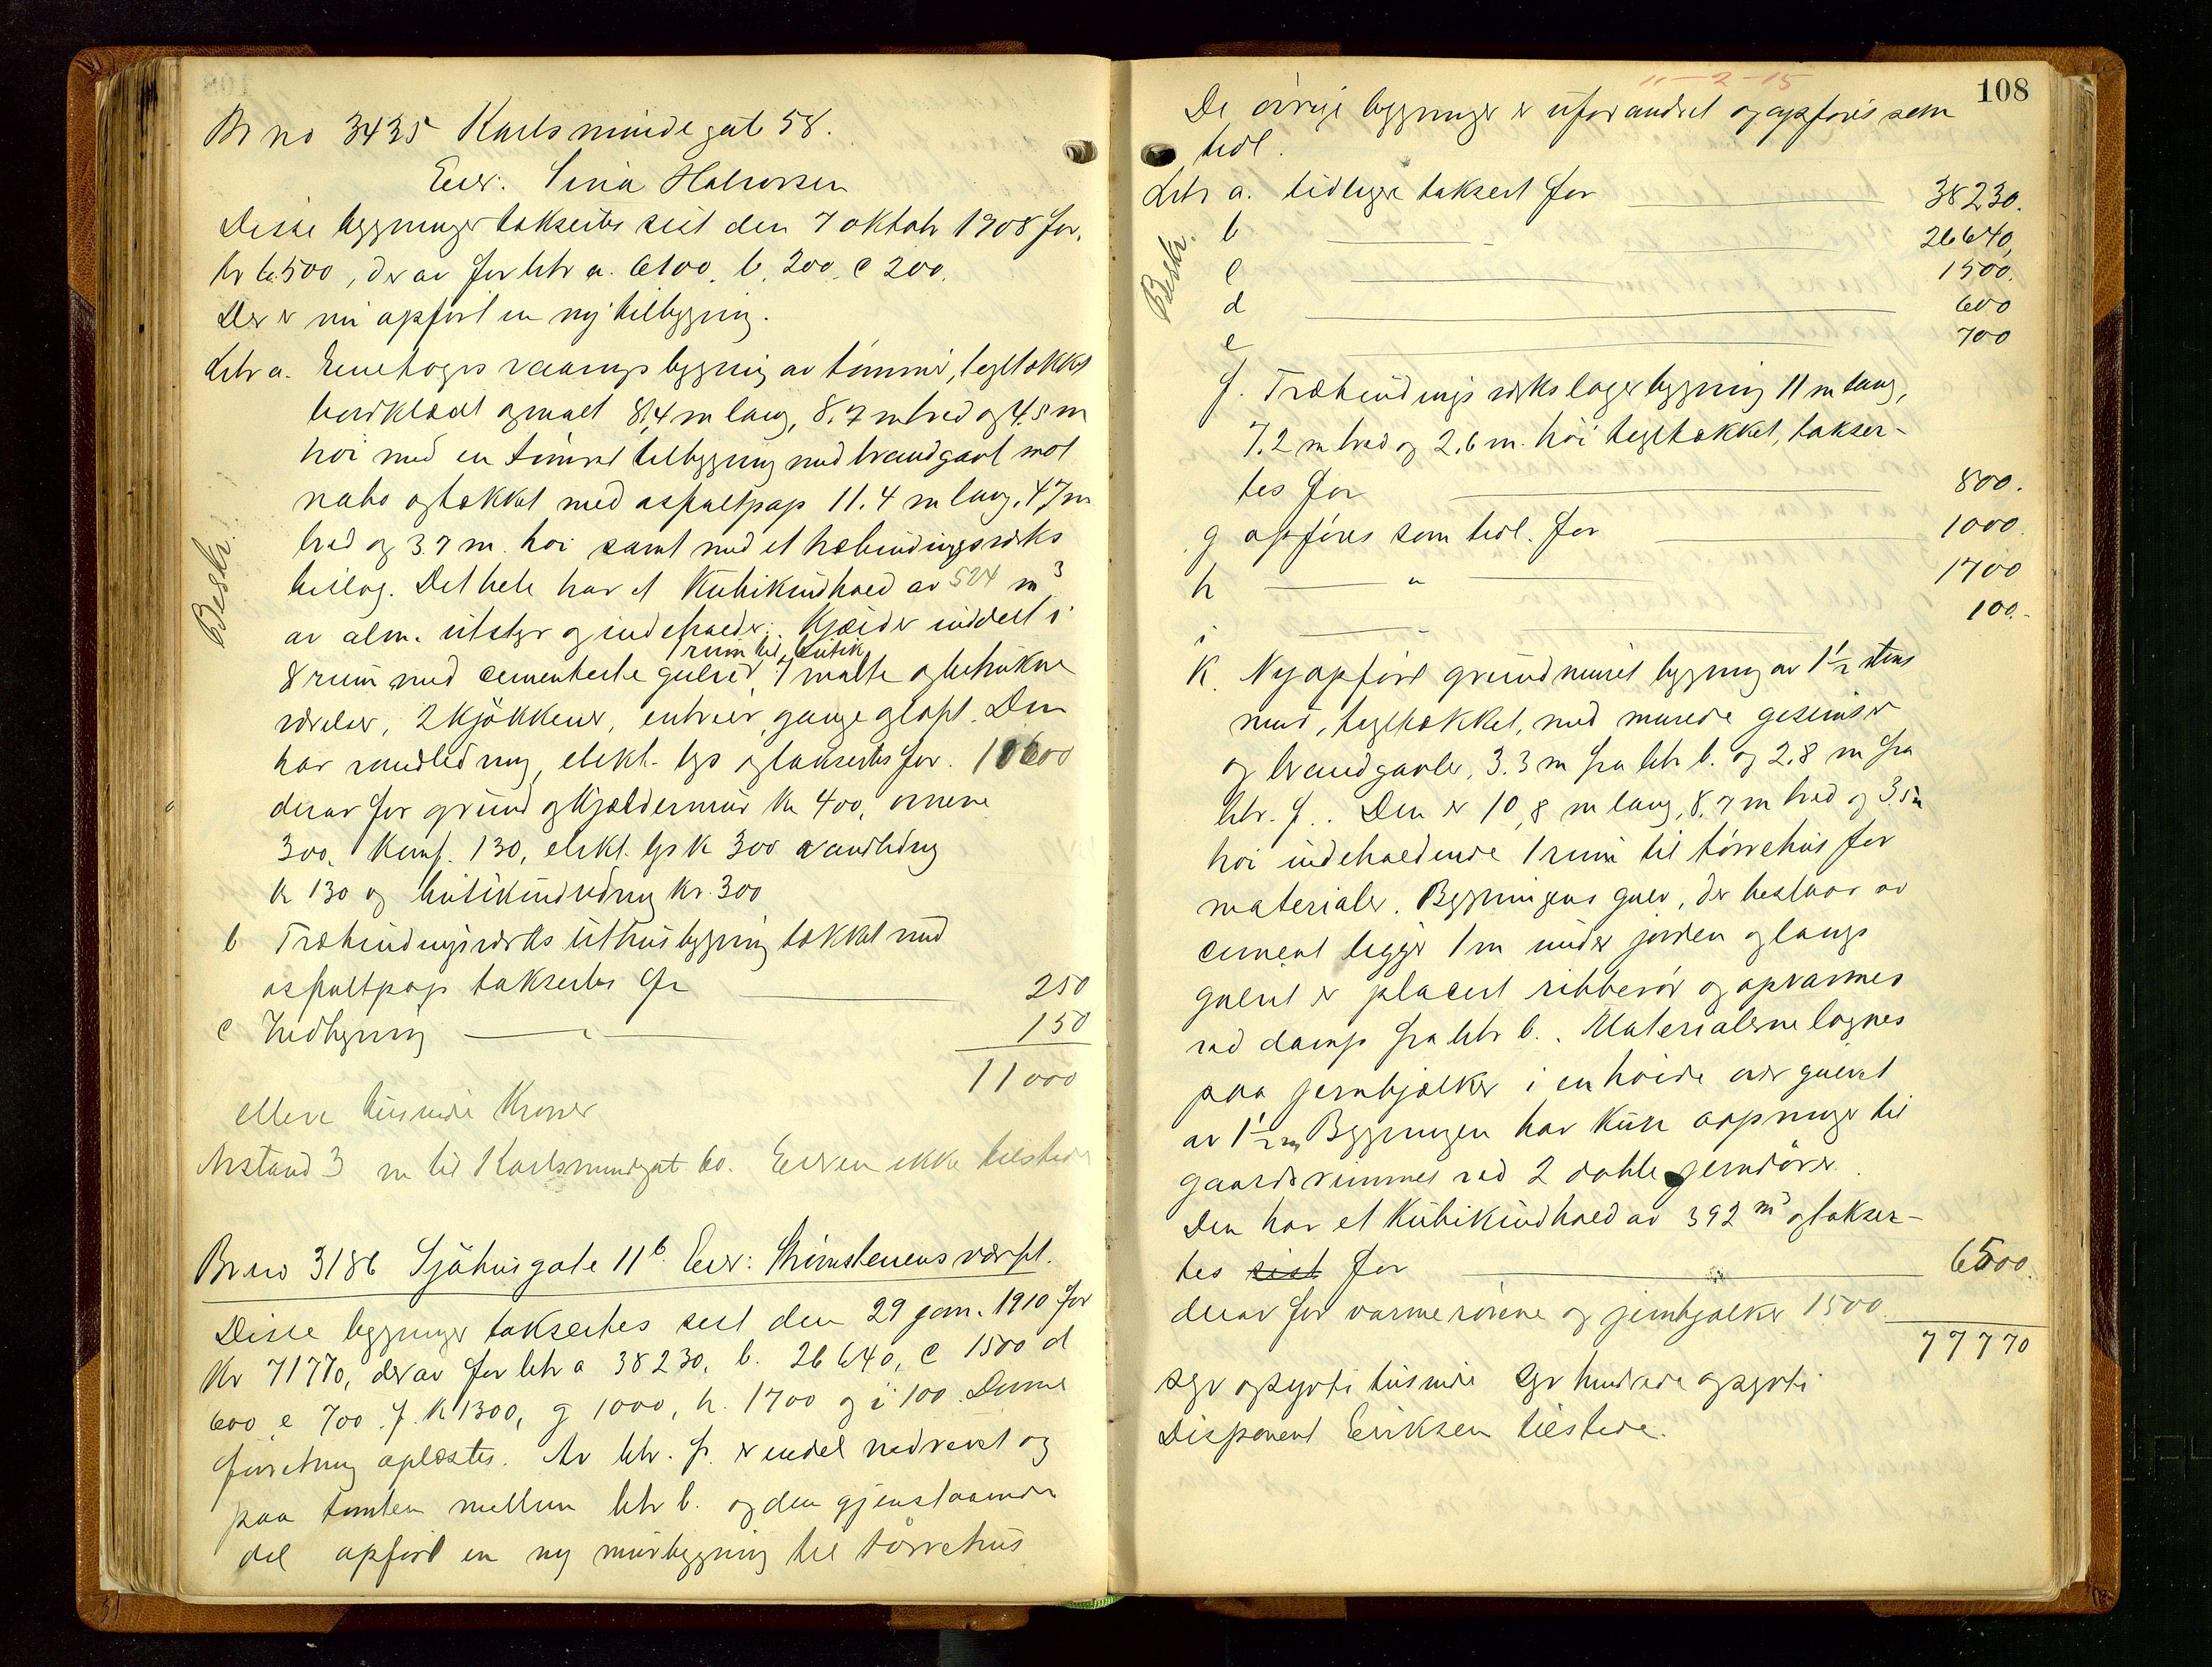 Br no 3435 Karlsmindegat 58.
Eier: Sina Halvorsen
Disse bygninger takseertes sist den 7 oktobr 1908 for,
Kr 6.500, derav for litr a. 6100, b. 200, c 200.
Der er nu opført en ny tilbygning.
Litr a. Enetages vaaningsbygning av tømmer, tegltækket
bordklædt og malt 8,4 m lang, 8.7 m bred og 4.5 m
høi med en tømret tilbygning med brandgavl mot
nabo og tækket med asfaltpap 11.4 m lang, 4,7 m
bred og 3.7 m. høi samt med et træbindingsverks
bislag. Det hele har et Kubikindhold av 524 m³
av alm. utstyr og indeholder: Kjelder inddelt i
8 rum med cementerte gulver, 1 rum til butik, 7 malte og betrukne
værelser, 2 kjøkkener, entreer, gange og loft. Den
har vandledning, elekt. lys og takseertes for. 10600
derav for grund og kjældermur Kr 400, ovnene
300, Komf. 130, elekt. lys k 300 vandledng
k 130 og butikindredng kr. 300
b Træbindingsverks uthusbygning tækket med
asfaltpap takseertes for 250
c Vedbygning — " — 150
11000
elleve tusinde Kroner
Avstand 3 m til Karlsmindegat 60. Eieren ikke tilstede
Beskr.
Br no 3186 Sjøhusgate 11ᵇ Eier: Strømstenens værft.
Disse bygninger takseertes sist den 29 jan. 1910 for
Kr 71770, derav for litr a 38230, b. 26640, c 1500 d
600 e 700 f. k 1300, g 1000, h. 1700 og i 100. Denne
forretning oplæstes. Av litr. f. er endel nedrevet og
paa tomten mellem litr b. og den gjenstaaende
del opført en ny murbygning til tørrehus
11-2-15
108
De øvrige bygninger er uforandret og opføres som
tidl.
Litr a. tidligere taksert for 38230.
b — " — 26640,
c — 1500.
d — 600
e — 700
Beskr.
f. Træbindingsverks lagerbygning 11 m lang,
7.2 m bred og 2.6 m. høi tegltækket, takser-
tes for 800.
g opføres som tidl. for 1000.
h — " — 1700
i — " — 100.-
K. Nyopført grundmuret bygning av 1½ stens
mur, tegltækket, med murede gesimser
og brandgavler, 3.3 m fra litr b. og 2.8 m fra
litr. f.. Den er 10,8 m lang, 8.7 m bred og 3.5 m
høi indeholdende 1 rum til tørrehus for
materialer. Bygningens gulv, der bestaar av
cement ligger 1 m under jorden og langs
gulvet er placert ribberør og opvarmes
ved damp fra litr b.. Materialerne lagres
paa jernbjælker i en høide over gulvet
av 1½ m Bygningen har kun aapninger til
gaardsrummet ved 2 doble jerndører.
Den har et Kubikindhold av 392 m³ og takser-
tes sist for 6500.
derav for varmerørene og jernbjælker 1500.
77770
syv og sytti tusinde syv hundrede og sytti
Disponent Eriksen tilstede.